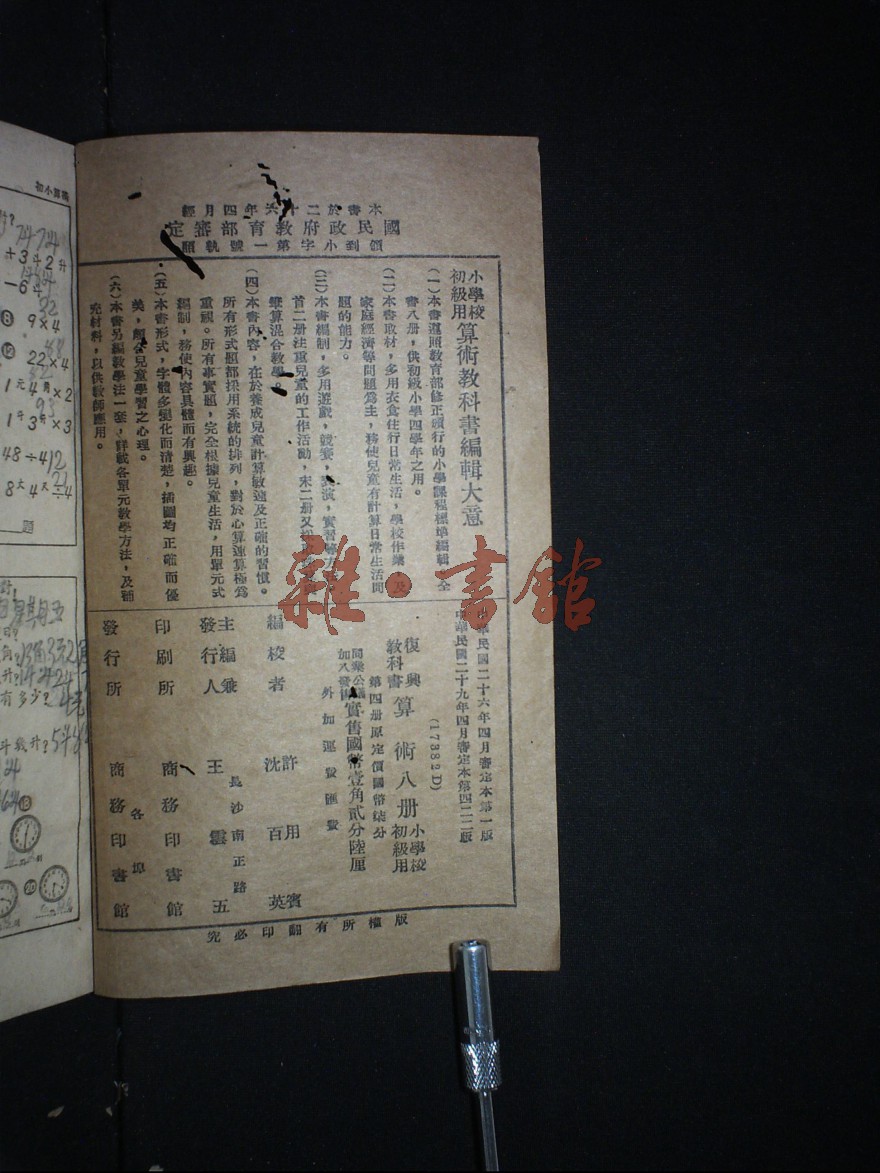 本書於二十六年四月經
國民政府教育部審定
領到小字第一號執照
小學校初級用 算術教科書編輯大意
(一)本書遵照教育部修正頒行的小學課程標準編輯,全
書八册,供初級小學四學年之用。
(二)本書取材,多用衣食住行日常生活,學校作業,及
家庭經濟等問題爲主,務使兒童有計算日常生活問
題的能力。
(三)本書編制,多用遊戲,競賽,表演,實習等方
首二册注重兒童的工作活動,末二册又
筆算混合教學。
(四)本書內容,在於養成兒童計算敏速及正確的習慣。
所有形式題都採用系統的排列,對於心算速算極爲
重視。所有事實題,完全根據兒童生活,用單元式
編制,務使內容具體而有興趣。
(五)本書形式,字體多變化而清楚,插圖均正確而優
美,頗合兒童學習之心理。
(六)本書另編教學法一套,詳載各單元教學方法,及補
充材料,以供教師應用。
中華民國二十六年四月審定本第一版
中華民國二十九年四月審定本第四二二版
(17382D)
復興教科書 算術八册 小學校初級用
第四册原定價國幣柒分
同業公議加八發售 實售國幣壹角貳分陸厘
外加運費匯費
編校者 許用賓
沈百英
主編兼發行人 王雲五
長沙南正路
印刷所 商務印書館
各埠
發行所 商務印書館
版權所有翻印必究
雜·書館
初小算
+3+2升
-64
8 9×4
12 22×4
1元4角×2
1斤3兩×3
48÷4 12
8丈4尺÷4
題
有多少?
斗幾升?
18
20